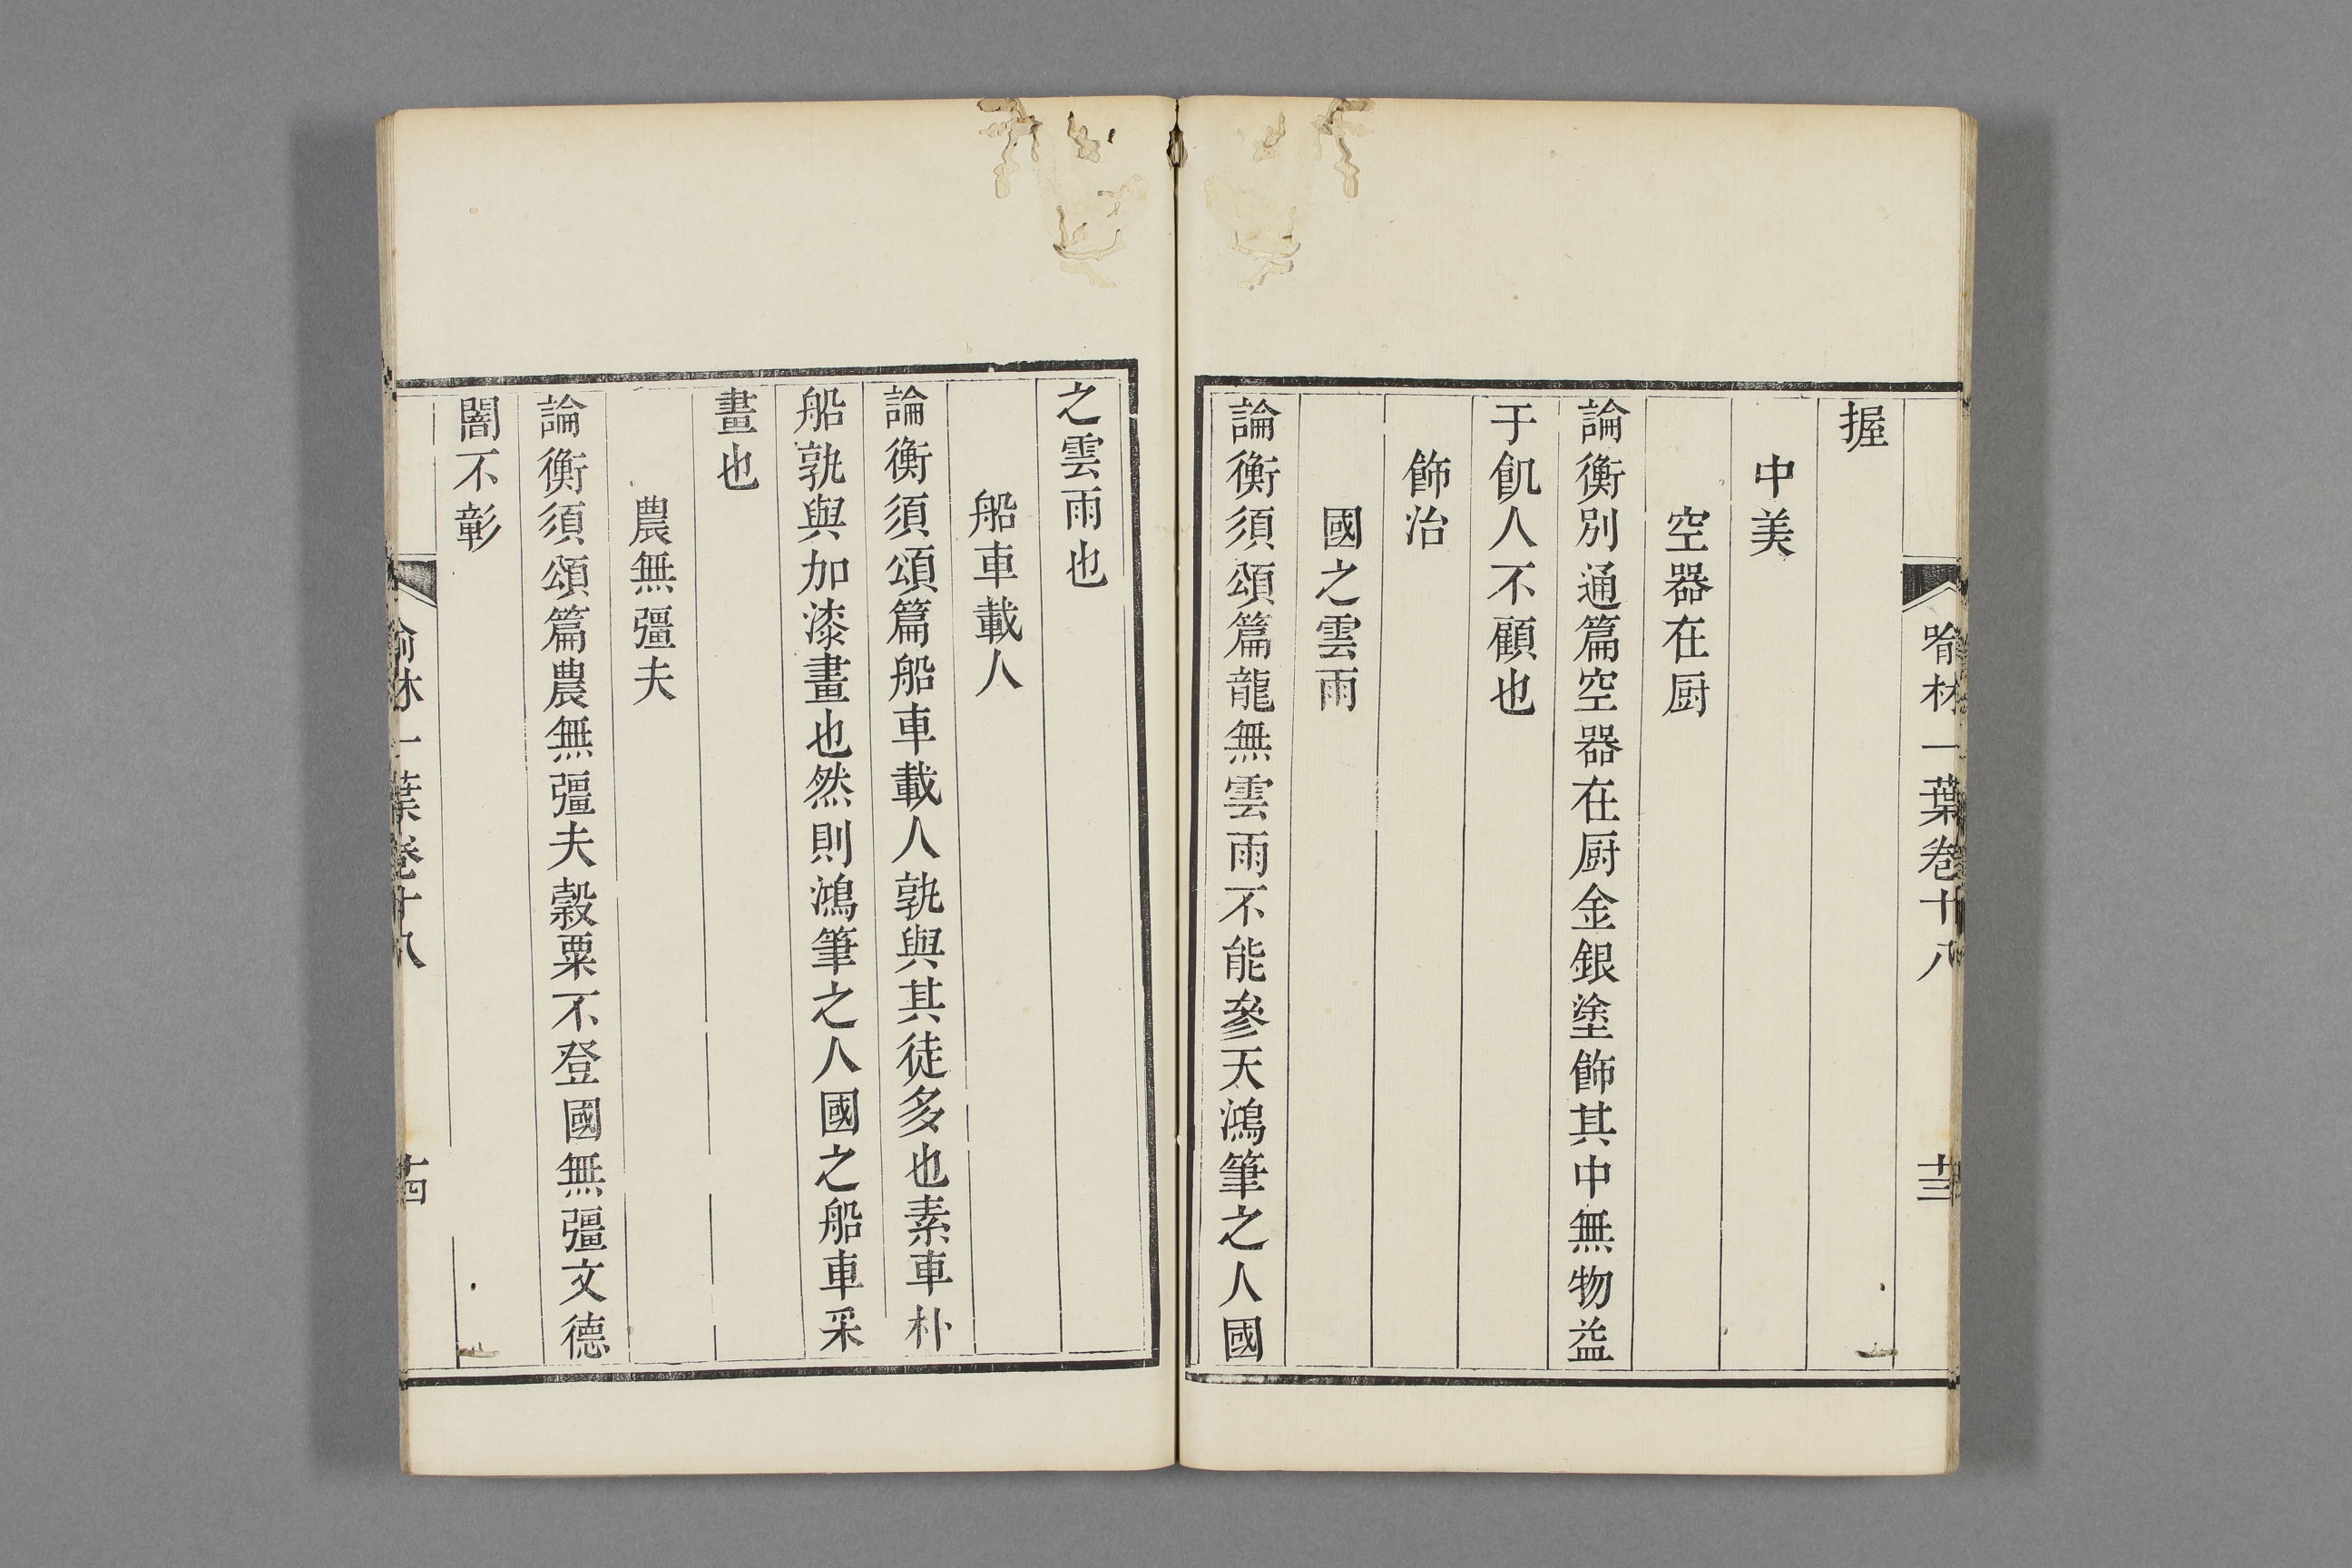 喻林一葉卷十八
十三
握
中美
空器在厨
論衡別通篇空器在厨金銀塗飾其中無物益
于飢人不顧也
飾治
國之雲雨
論衡須頌篇龍無雲雨不能參天鴻筆之人國
之雲雨也
船車載人
論衡須頌篇船車載人孰與其徒多也素車朴
船孰與加漆畫也然則鴻筆之人國之船車采
畫也
農無彊夫
論衡須頌篇農無彊夫穀粟不登國無彊文德
闇不彰
喻林一葉卷十八
十四